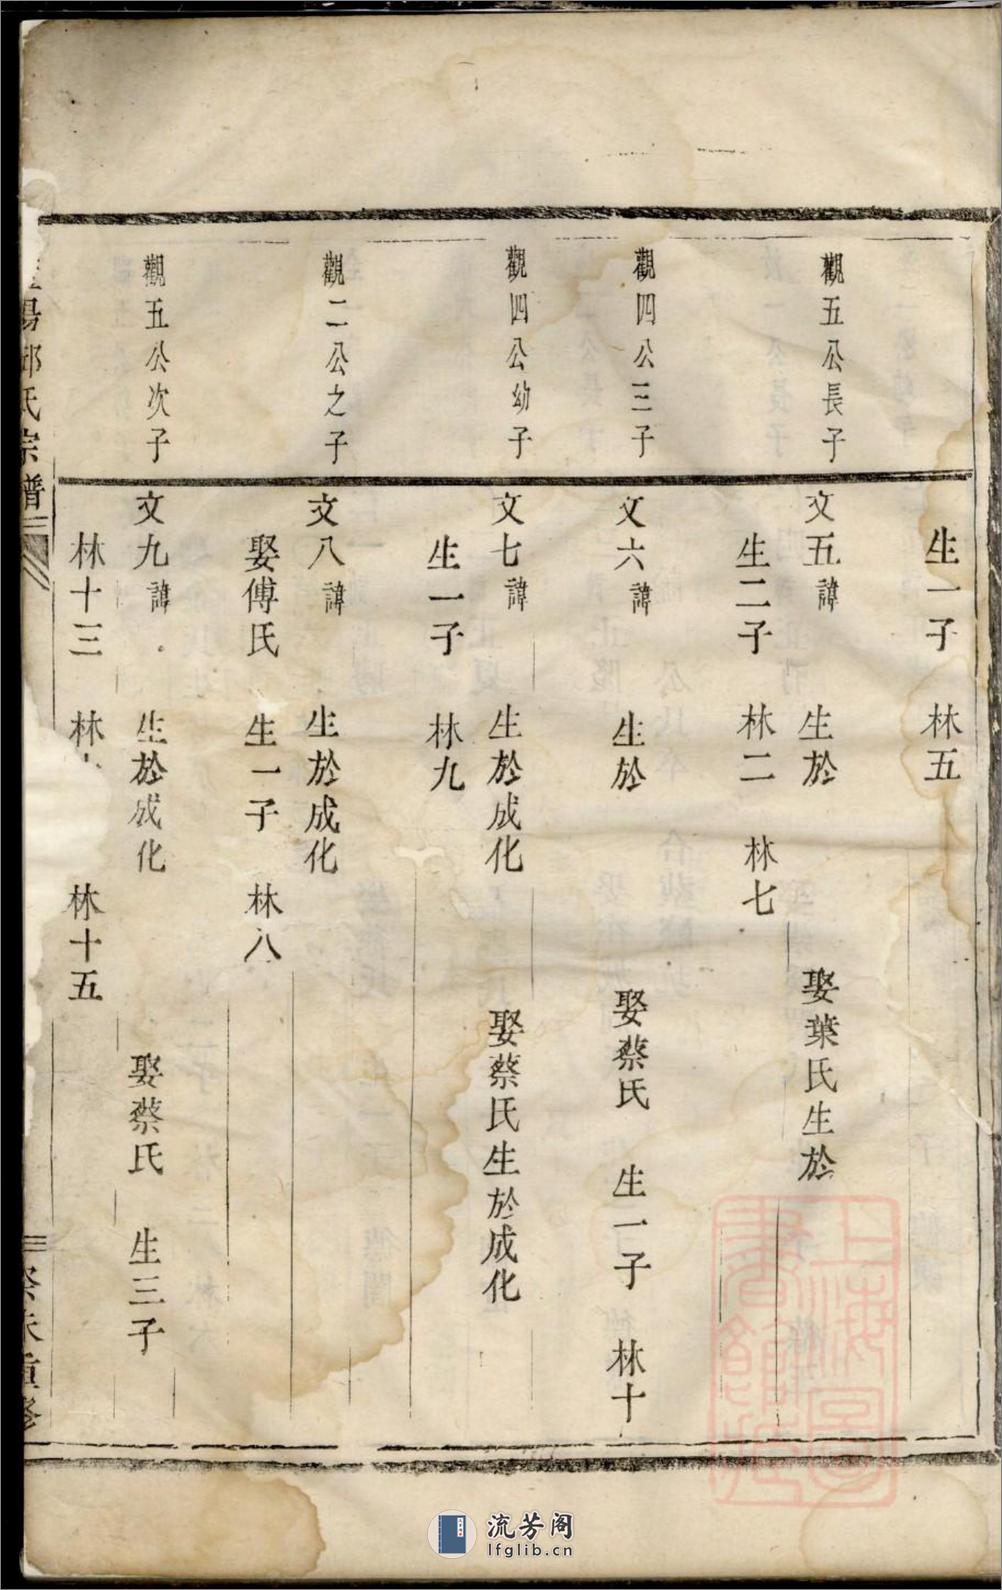 生一子 林五
觀五公長子
文五諱 生於 娶葉氏生於
生二子 林二 林七
觀四公三子
文六諱 生於 娶蔡氏 生一子 林十
觀四公幼子
文七諱 生於成化 娶蔡氏生於成化
生一子 林九
觀二公之子
文八諱 生於成化
娶傅氏 生一子 林八
觀五公次子
文九諱 生於成化 娶蔡氏 生三子
林十三 林 林十五
陽邱氏宗譜
重修
上海圖書館藏
流芳阁
lfglib.cn